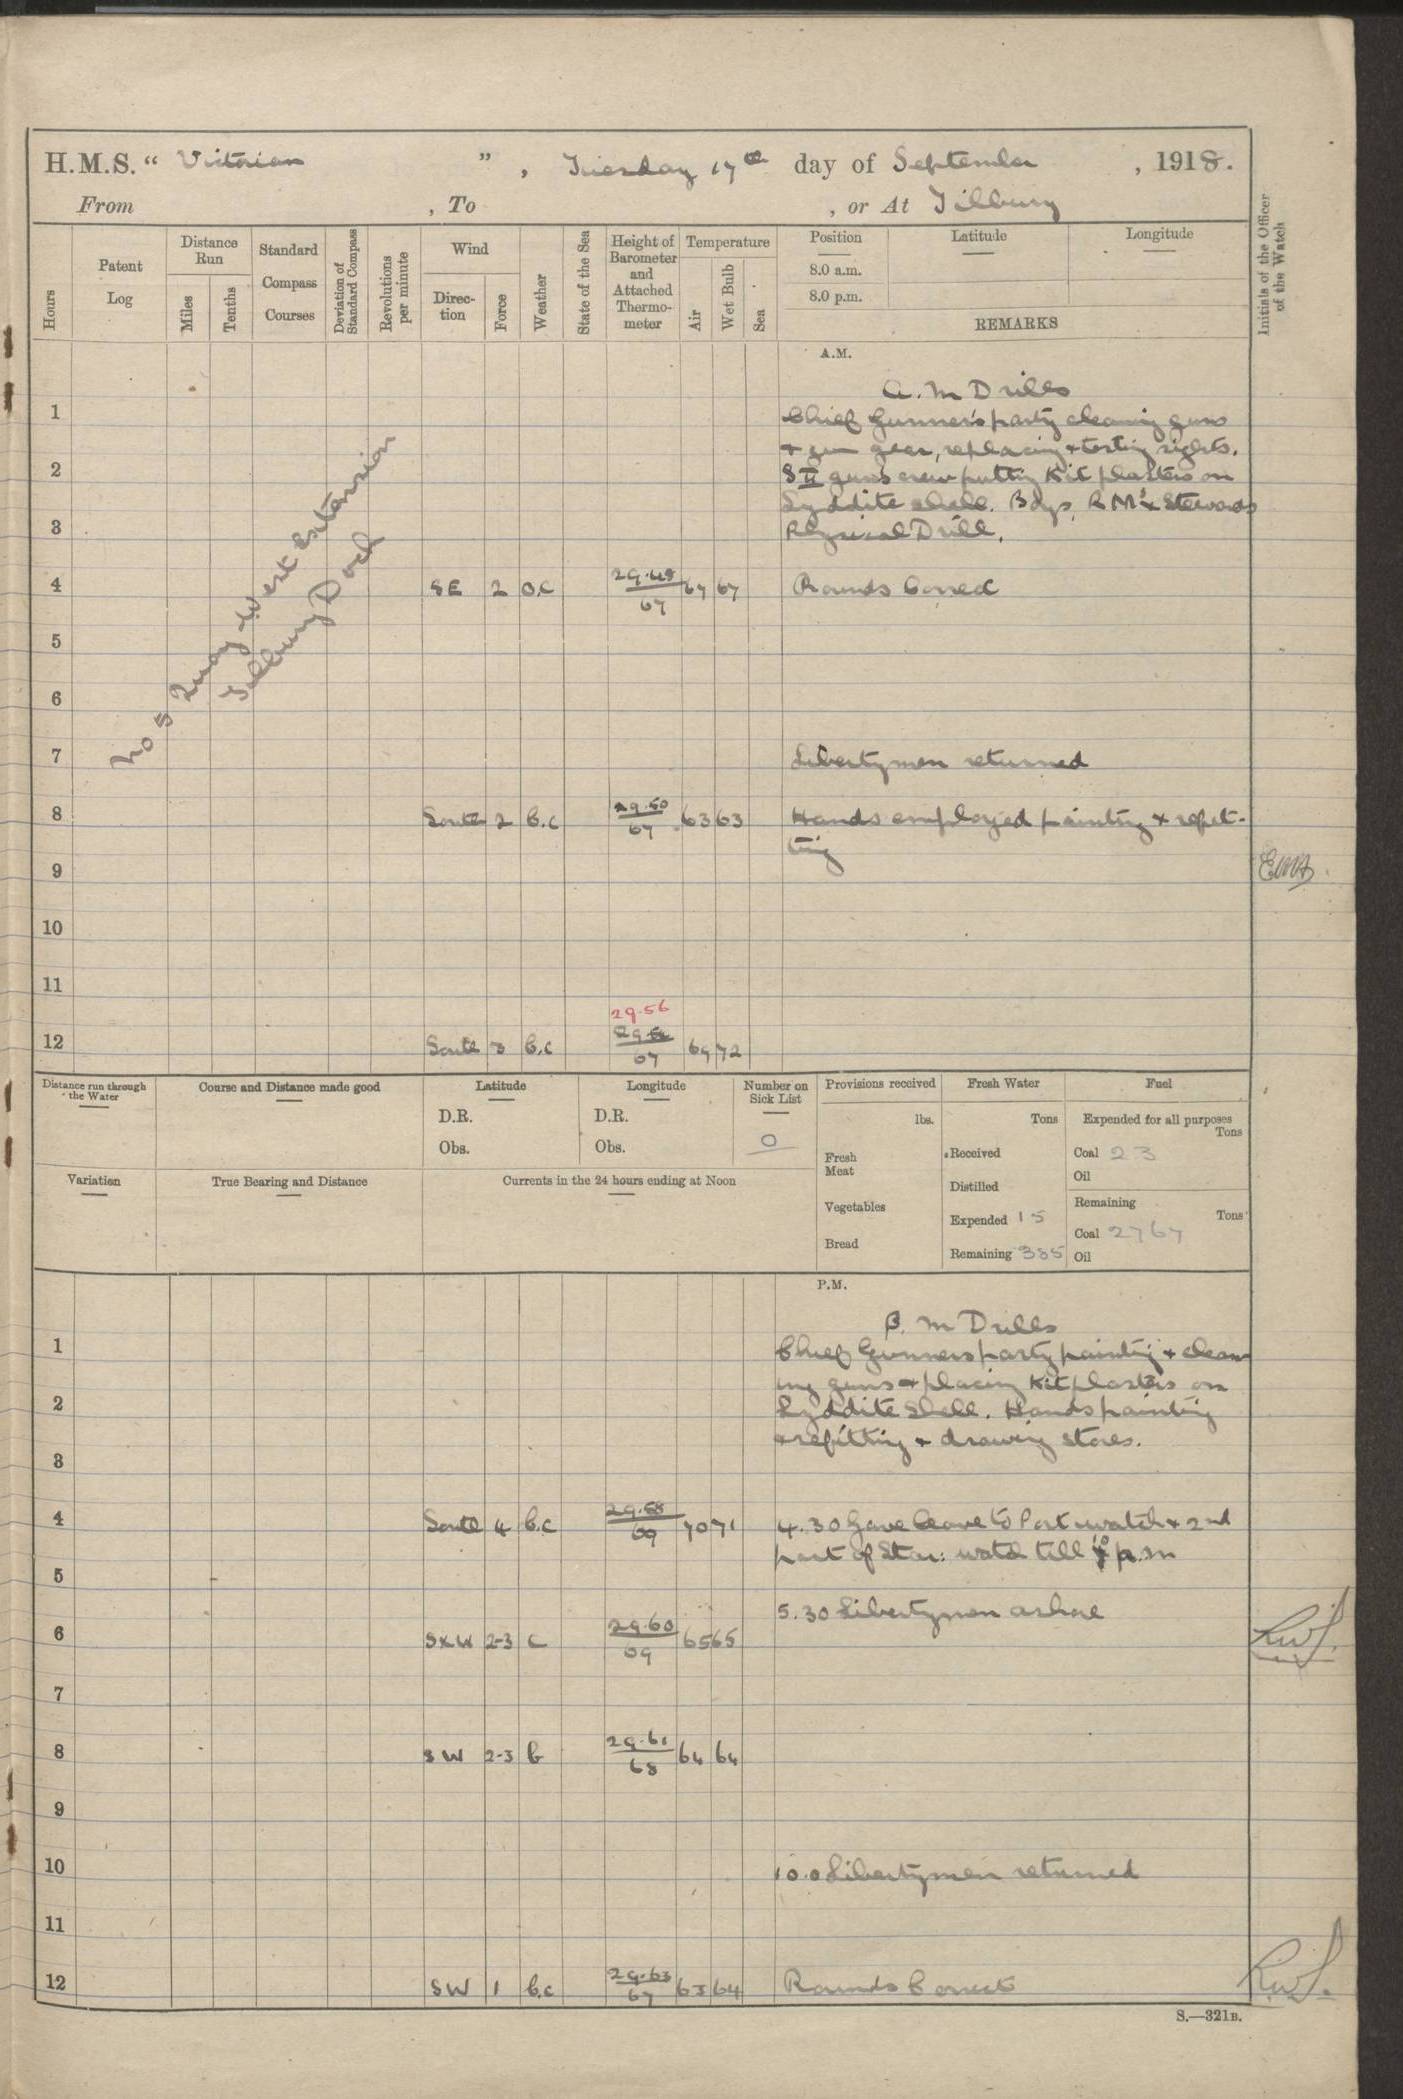 H.M.S. “ Victorian ”, Tuesday 17th day of September, 1918.
From , To , or At Tilbury
Hours
Patent Log
Distance Run
Miles
Tenths
Standard Compass Courses
Deviation of Standard Compass
Revolutions per minute
Wind
Direc-tion
Force
Weather
State of the Sea
Height of Barometer and Attached Thermo-meter
Temperature
Air
Wet Bulb
Sea
Position
Latitude
Longitude
8.0 a.m.
8.0 p.m.
REMARKS
Initials of the Officer of the Watch
A.M.
A.M Drills
1 Chief Gunner's party cleaning guns
& gun gear, replacing & testing sights.
2 S II guns crew putting Kit plasters on
Lyddite shell. Boys, RM's & Stewards
3 Physical Drill.
No 5 Quay West Extension
Tilbury Dock
4 SE 2 O.C 29.48 67 67 67 Rounds Correct
5
6
7 Libertymen returned
8 South 2 b.c 29.50 67 63 63 Hands employed painting & refit-
ting
9
10
11
29.56
12 South 3 b.c 67 69 72
Distance run through the Water
Course and Distance made good
Latitude
D.R.
Obs.
Longitude
D.R.
Obs.
Number on Sick List
0
Provisions received
lbs.
Fresh Meat
Vegetables
Bread
Fresh Water
Tons
Received
Distilled
Expended 15
Remaining 385
Fuel
Expended for all purposes
Tons
Coal 23
Oil
Remaining
Tons
Coal 2767
Oil
Variation
True Bearing and Distance
Currents in the 24 hours ending at Noon
P.M.
P.M Drills
1 Chief Gunners party painting & clean
ing guns & placing Kit plasters on
2 Lyddite Shell. Hands painting
& refitting & drawing stores.
3
4 South 4 b.c 29.58 69 70 71 4.30 Gave leave to Port watch & 2nd
part of Star: watch till 10 p.m
5
5.30 Libertymen ashore
6 SXW 2-3 C 29.60 69 65 65
7
8 SW 2-3 b 29.61 68 64 64
9
10 10.0 Libertymen returned
11
12 SW 1 b.c 29.63 67 63 64 Rounds Correct
S.—321B.